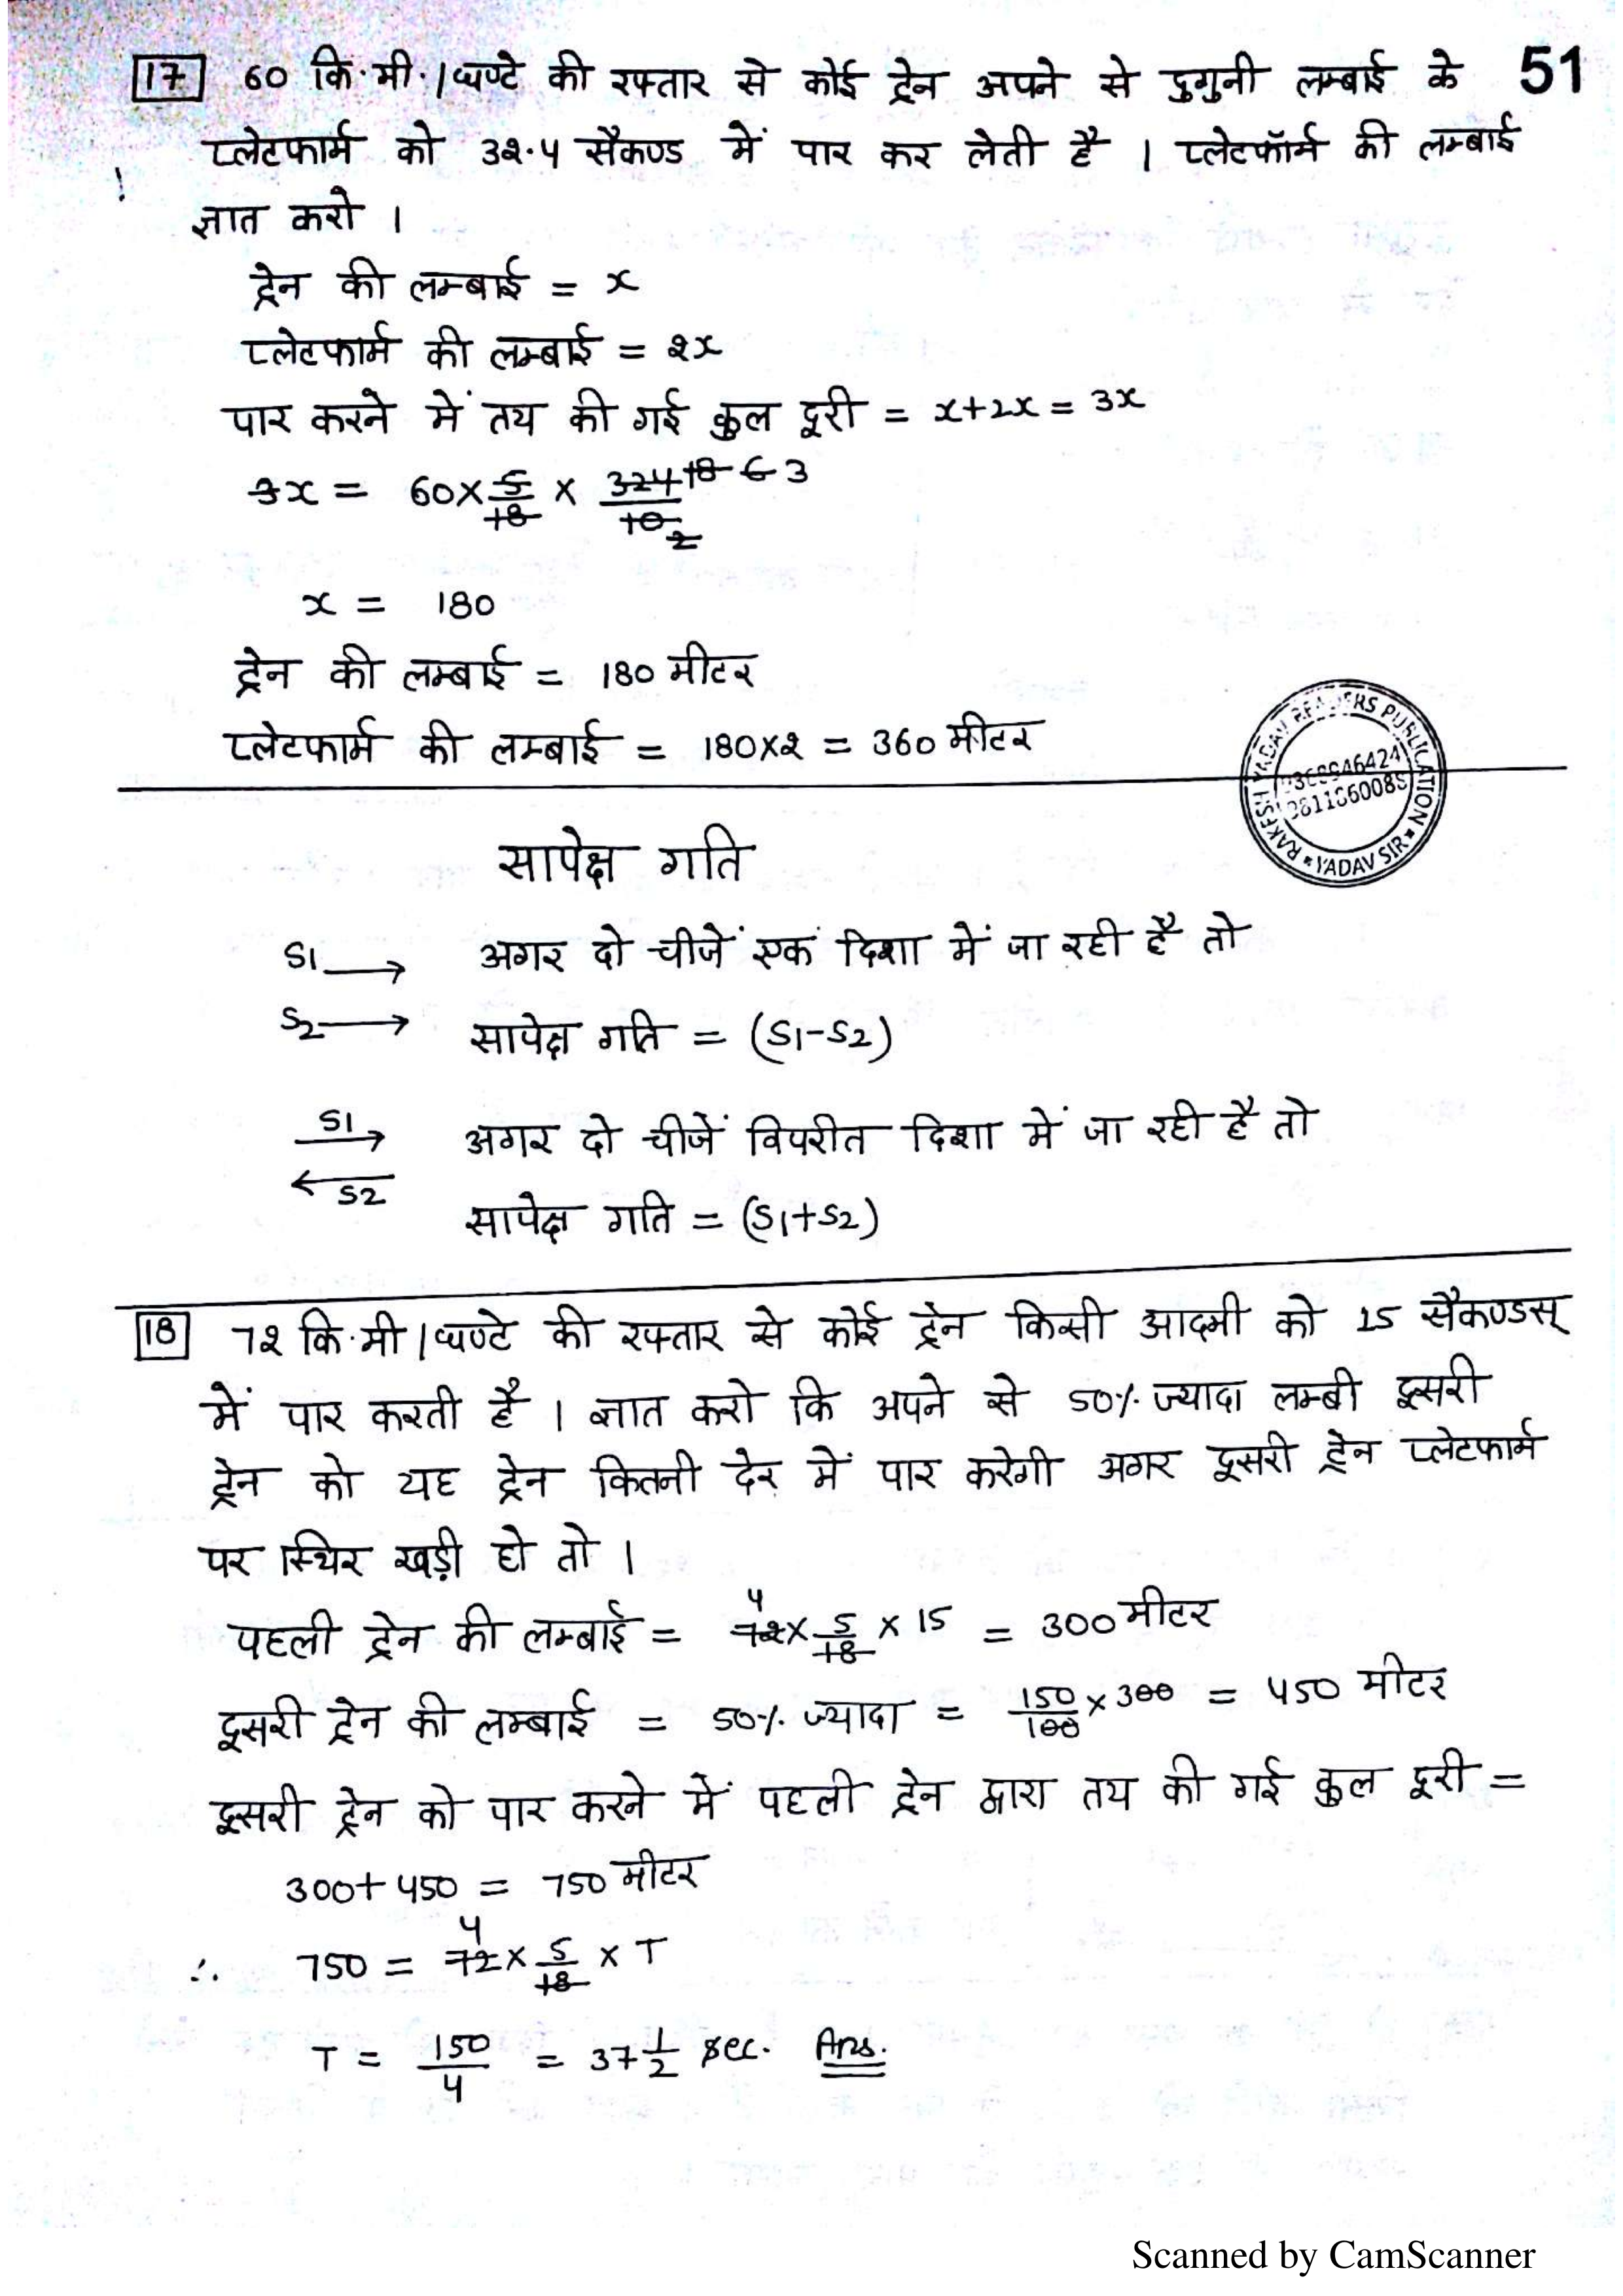 17 60 कि.मी./घण्टे की रफ्तार से कोई ट्रेन अपने से दुगुनी लम्बाई के 51
प्लेटफार्म को 32.4 सैकण्ड में पार कर लेती है । प्लेटफॉर्म की लम्बाई
ज्ञात करो ।
ट्रेन की लम्बाई = x
प्लेटफार्म की लम्बाई = 2x
पार करने में तय की गई कुल दूरी = x+2x = 3x
3x = 60 × 5/18 × 324/10 18 6 3 2
x = 180
ट्रेन की लम्बाई = 180 मीटर
प्लेटफार्म की लम्बाई = 180×2 = 360 मीटर
RAKESH YADAV READERS PUBLICATION * YADAV SIR *
सापेक्ष गति
S1 → अगर दो चीजें एक दिशा में जा रही है तो
S2 → सापेक्ष गति = (S1-S2)
S1 → अगर दो चीजें विपरीत दिशा में जा रही है तो
← S2
सापेक्ष गति = (S1+S2)
18 72 कि.मी/घण्टे की रफ्तार से कोई ट्रेन किसी आदमी को 15 सैकण्डस्
में पार करती है । ज्ञात करो कि अपने से 50% ज्यादा लम्बी दूसरी
ट्रेन को यह ट्रेन कितनी देर में पार करेगी अगर दूसरी ट्रेन प्लेटफार्म
पर स्थिर खड़ी हो तो ।
पहली ट्रेन की लम्बाई = 4 72 × 5/18 × 15 = 300 मीटर
दूसरी ट्रेन की लम्बाई = 50% ज्यादा = 150/100 × 300 = 450 मीटर
दूसरी ट्रेन को पार करने में पहली ट्रेन द्वारा तय की गई कुल दूरी =
300+450 = 750 मीटर
∴ 750 = 4 72 × 5/18 × T
T = 150/4 = 37 1/2 sec. Ans.
Scanned by CamScanner